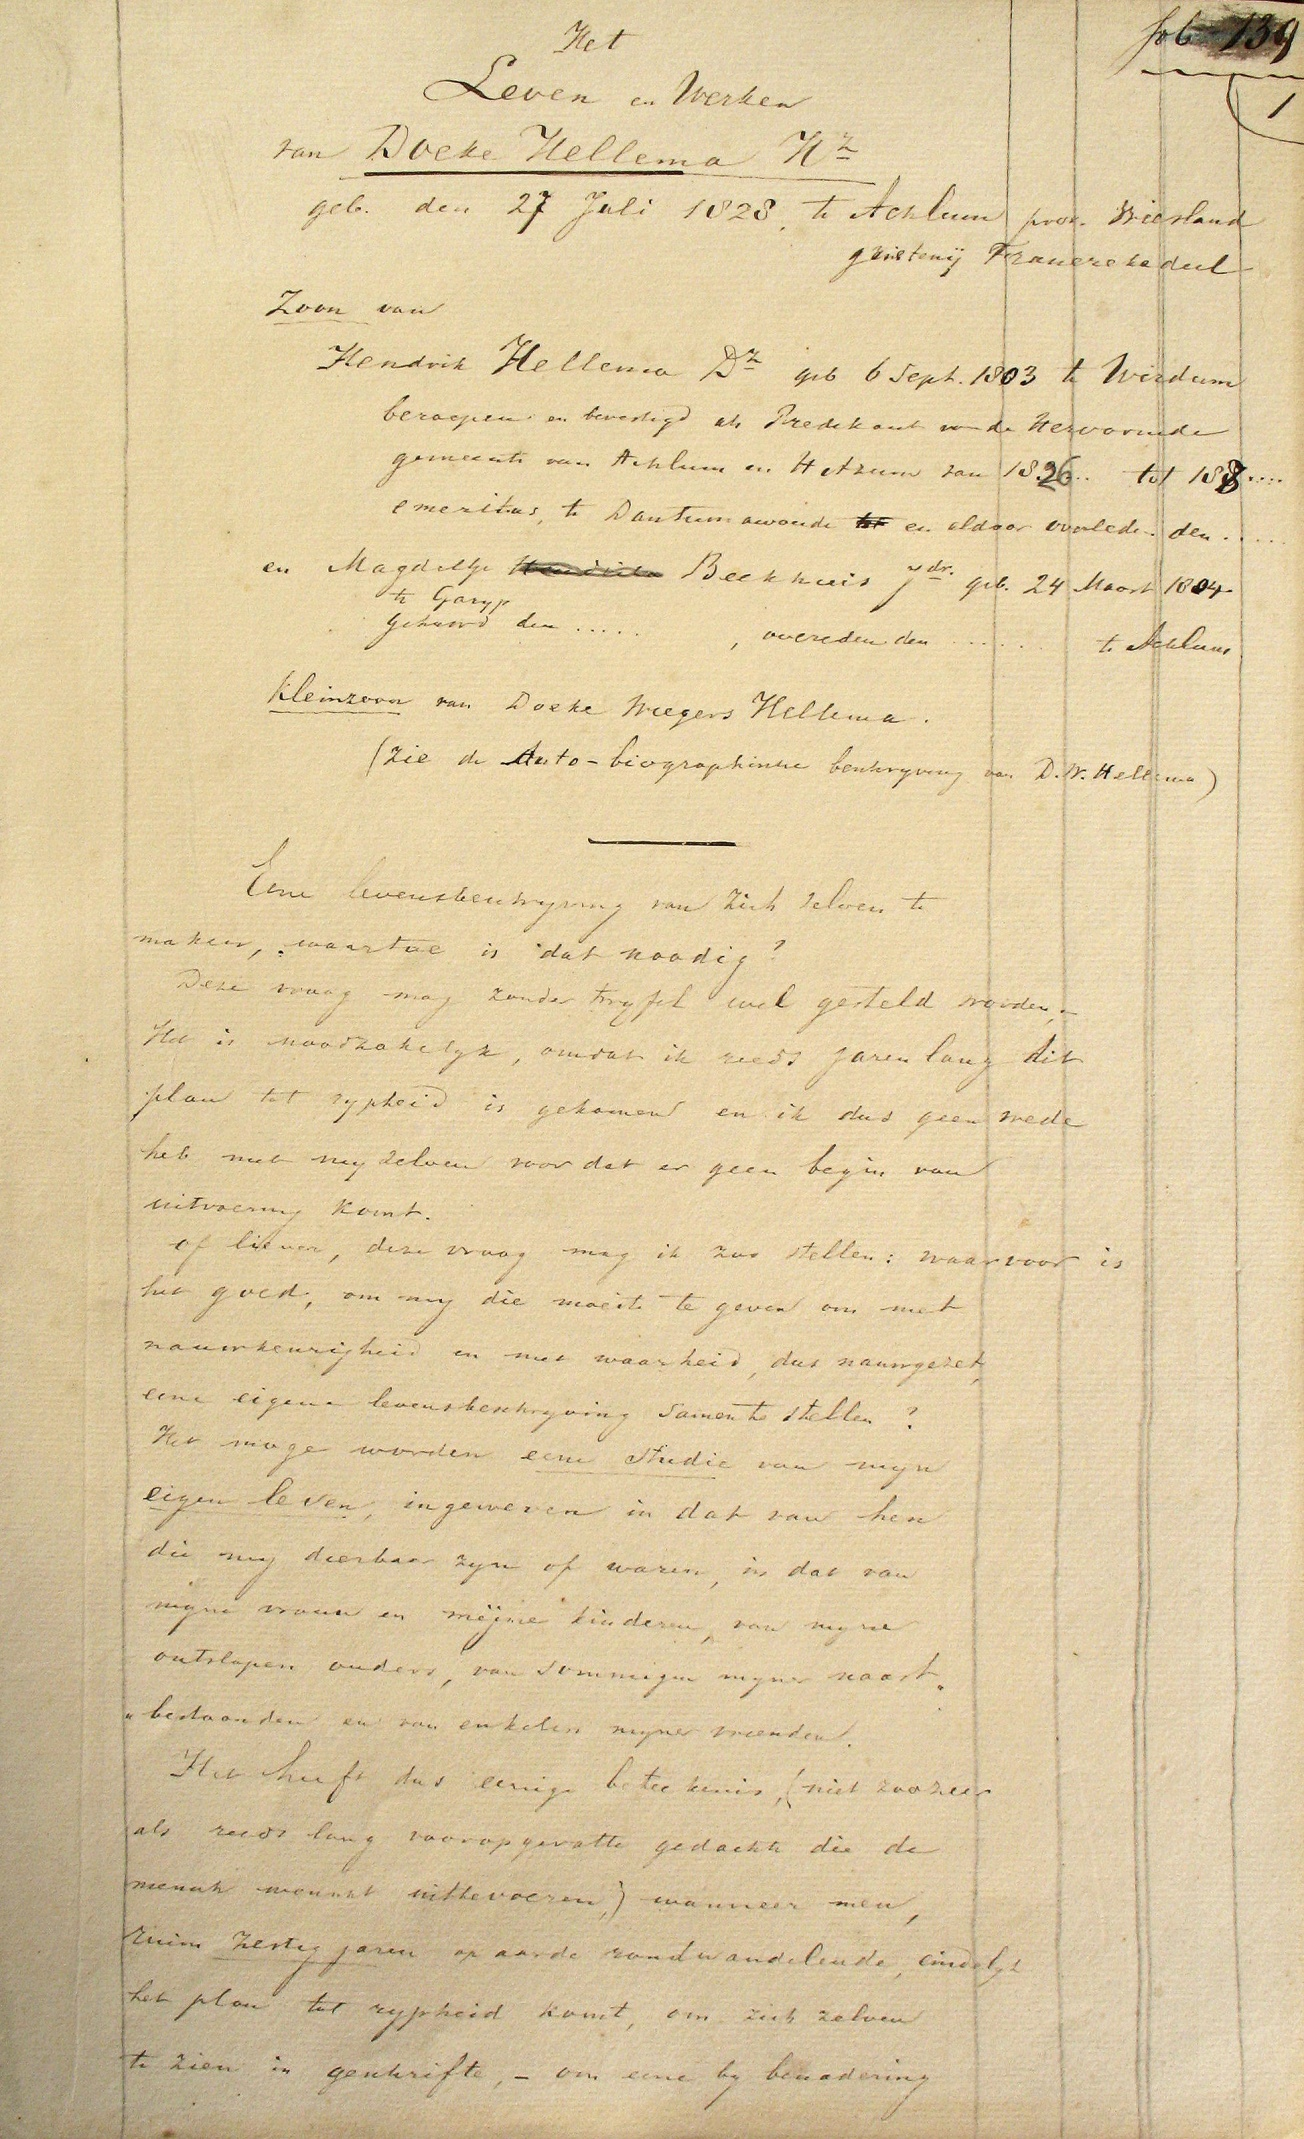 fol 139
1
Het
Leven en Werken
van Doeke Hellema Hz
geb. den 27 Juli 1828, te Achlum prov. Vriesland
grietenij Franerekadeel
Zoon van
Hendrik Hellema Dz geb 6 Sept. 1803 te Wirdum
beroepen en bevestigd als Predikant van de Hervormde
gemeente van Achlum en Hitzum van 1826.. tot 188....
emeritus, te Dantumawoude en aldaar overleden den .....
en Magdeltje Beekhuis Jdr. geb. 24 Maart 1804
te Garyp
gehuwd den ..... , overleden den ...... te Achlum
Kleinzoon van Doeke Wiegers Hellema.
(zie de Auto-biographische beschryving van D. W. Hellema)
Eene levensbeschryving van zich selven te
maken, waartoe is dat noodig?
Deze vraag mag zonder twyfel wel gesteld worden,-
Het is noodzakelyk, omdat ik reeds jaren lang dit
plan tot rypheid is gekomen en ik dus geen vrede
heb met my zelven voor dat er geen begin van
uitvoering komt.
of liever, deze vraag mag ik zoo stellen: waarvoor is
het goed, om my die moeite te geven om met
nauwkeurigheid en met waarheid, dus nauwgezet,
eene eigene levensbeschryving samen te stellen?
Het moge worden eene studie van myn
eigen leven, ingeweven in dat van hen
die my dierbaar zyn of waren, in dat van
myne vrouw en mijne kinderen, van myne
ontslapen ouders, van sommigen myner naast„
„bestaanden en van enkelen myner vrienden.
Het heeft dus eenige beteekenis, (niet zoozeer
als reeds lang vooropgevatte gedachte die de
mensch wenscht uittevoeren,) wanneer men,
ruim zestig jaren op aarde rondwandelende, eindelyk
het plan tot rypheid komt, om zich zelven
te zien in geschrifte, - om eene by benadering